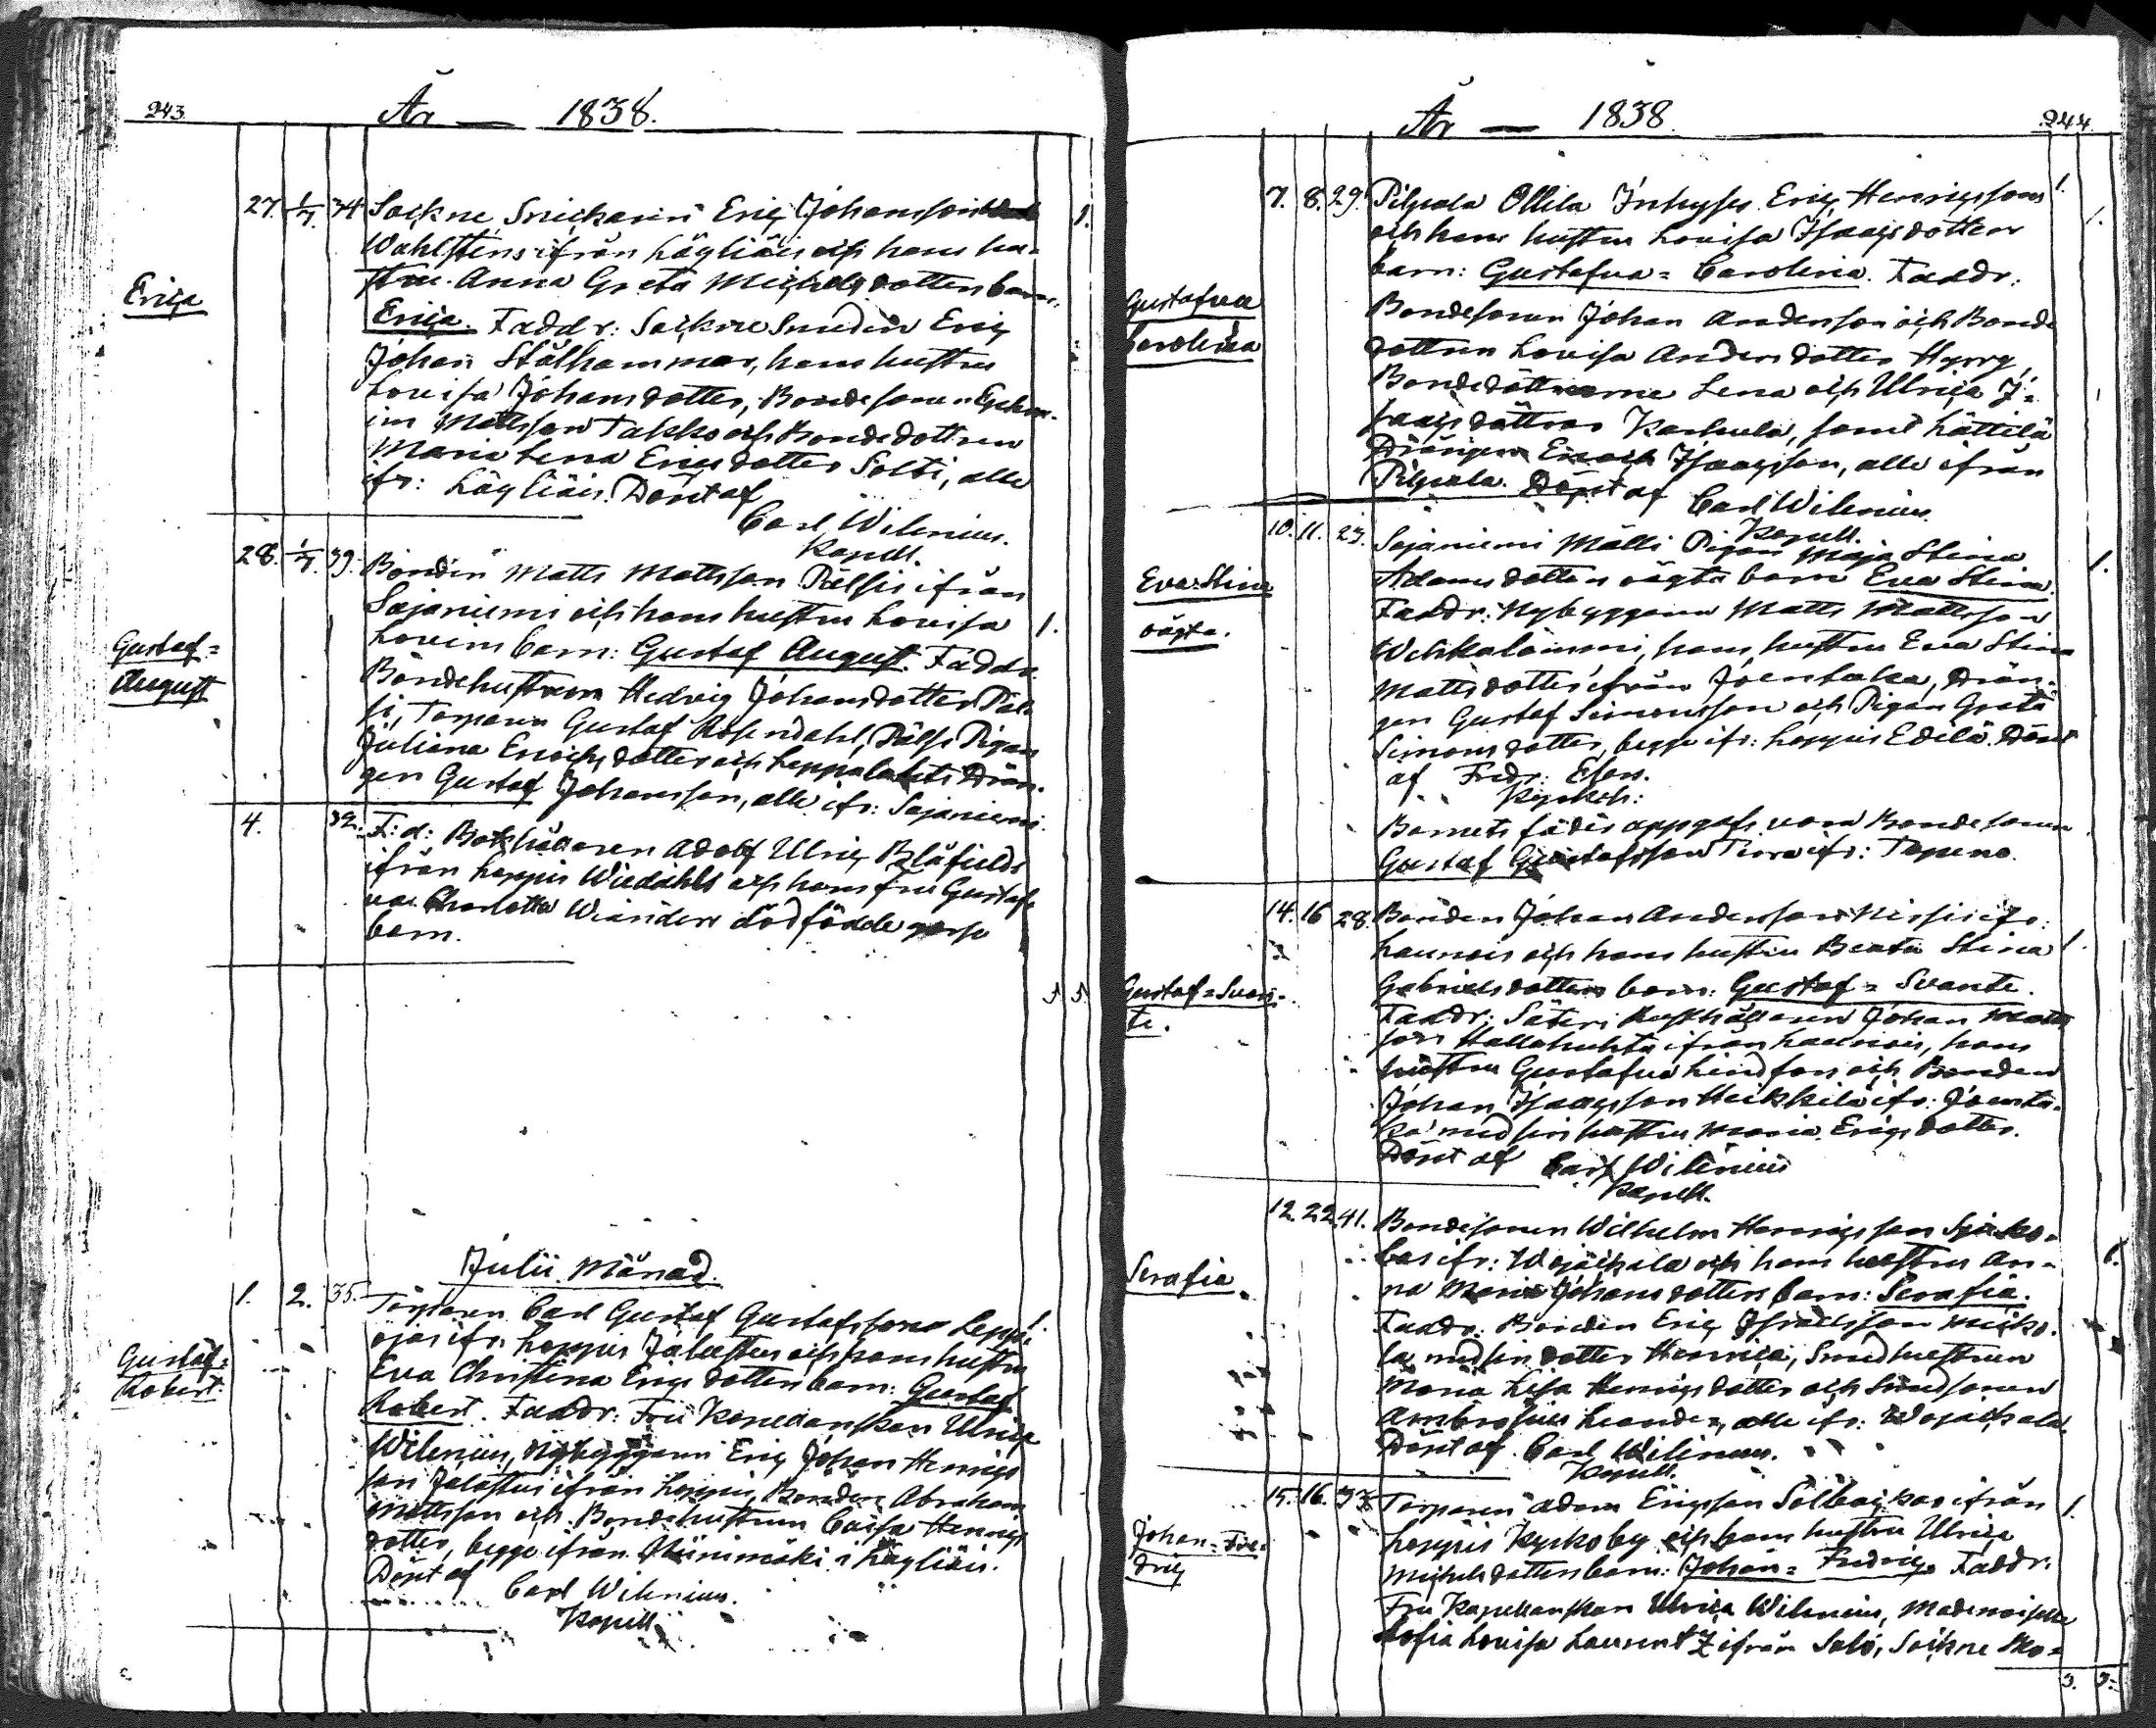 243.
År — 1838.
27. 1/7. 34 Sockne Snickaren Eric Johansson
Wahlstens ifrån Läyliäis och hans hu-
stru Anna Greta Michelsdotters barn:
Erica
Erica. Faddr: Sockne Smeden Eric
Johan Stålhammar, hans hustru
Lovisa Johansdotter, Bondesonen
Mattsson Takko och Bondedottren
Maria Lena Ericsdotter Solti, alle
ifr: Läyliäis. Döpt af
Carl Wilenius.
Kapell.
1.
28. 1/7. 39. Bonden Matts Mattsson Pälsis ifrån
Sajaniemi och hans hustru Lovisa
barn: Gustaf August. Faddr.
1.
Gustaf=
August
Bondehustrun Hedvig Johansdotter Päl-
si, Torparen Gustaf Rosendahl, Pälsi Pigan
Juliana Enochsdotter och Leppalahti Drän-
gen Gustaf Johansson, alle ifr: Sajaniemi.
4. 32. F: d: Bokhållaren Adolf Ulric Blåfields
ifrån Loppis Wiedahls och hans fru Gustaf-
va Charlotta dödfödde gosse
barn.
5 5.
Julii Månad.
1. 2. 35. Torparen Carl Gustaf Gustafssons Leppä-
ojas ifr: Loppis Jalustus och hans hustru
Eva Christina Ericsdotters barn: Gustaf
1.
Gustaf=
Robert.
Robert. Faddr: Fru Kapellanskan Ulrica
Wilenius, Nybyggaren Eric Johan Henrics
son Jalustus ifrån Loppis, Bonden Abraham
Mattsson och Bondehustrun Caisa Henrics
dotter, begge ifrån Niinimäki i Läyliäis.
Döpt af
Carl Wilenius.
Kapell.
År — 1838.
244.
7. 8. 29. Pilpala Ollila Inhyses Eric Henricssons
och hans hustru Lovisa Isaacsdotters
barn: Gustafva=Carolina. Faddr:
1. 1.
Gustafva
Carolina
Bondesonen Johan Andersson och Bonde
dottren Lovisa Andersdotter Hyrry,
Bondedöttrarne Lena och Ulrica I=
saacsdöttrar Karhula, samt Lättilä
Drängen Enoch Isaacsson, alle ifrån
Pilpala. Döpt af Carl Wilenius.
Kapell.
10. 11. 23. Sajaniemi Mälli Pigan Maja Stina
Adamsdotters oägta barn Eva Stina.
1.
Eva Stina
oägta.
Faddr: Nybyggaren Matts Mattsson
hans hustru Eva Stina
Mattsdotter ifrån Joentaka, Drän-
gen Gustaf Simonsson och Pigan Greta
Simonsdotter, begge ifr: Loppis Edilä. Döpt
af Fredr: Elfen.
Kyrkoh:
Barnets fader uppgafs vara Bondesonen
Gustaf Gustafsson ifr: Topeno.
14. 16 28. Bonden Johan Andersson Nissis ifr:
Launois och hans hustru Beata Stina
Gabrielsdotters barn: Gustaf=Svante.
1.
Gustaf=Svan-
te.
Faddr: Säteri Rusthållaren Johan Matts
son Hallahuhta ifrån Launois, hans
hustru Gustafva Lindfors och Bonden
Johan Isaacsson Heikkilä ifr: Joenta-
ka med sin hustru Maria Ericsdotter.
Döpt af Carl Wilenius
Kapell.
12. 22. 41. Bondesonen Wilhelm Henricsson
ifr: Wojackala och hans hustru An-
na Maria Johansdotters barn: Serafia.
1.
Serafia
Faddr. Bonden Eric Israelsson
med sin dotter Henrica, Smedhustrun
Maria Lisa Henricsdotter och Smedsonen
Ambrosius Leander, alle ifr: Wojackala.
Döpt af Carl Wilenius.
Kapell.
15. 16. 33. Torparen Adam Ericsson Solbackas ifrån
Loppis Kyrkoby och hans hustru Ulrica
Michelsdotters barn: Johan=Fredric. Faddr.
1.
Johan=Fre-
dric
Fru Kapellanskan Ulrica Wilenius, Mademoiselle
Sofia Lovisa Laurentz ifrån Salo, Sockne Sko=
3. 3.